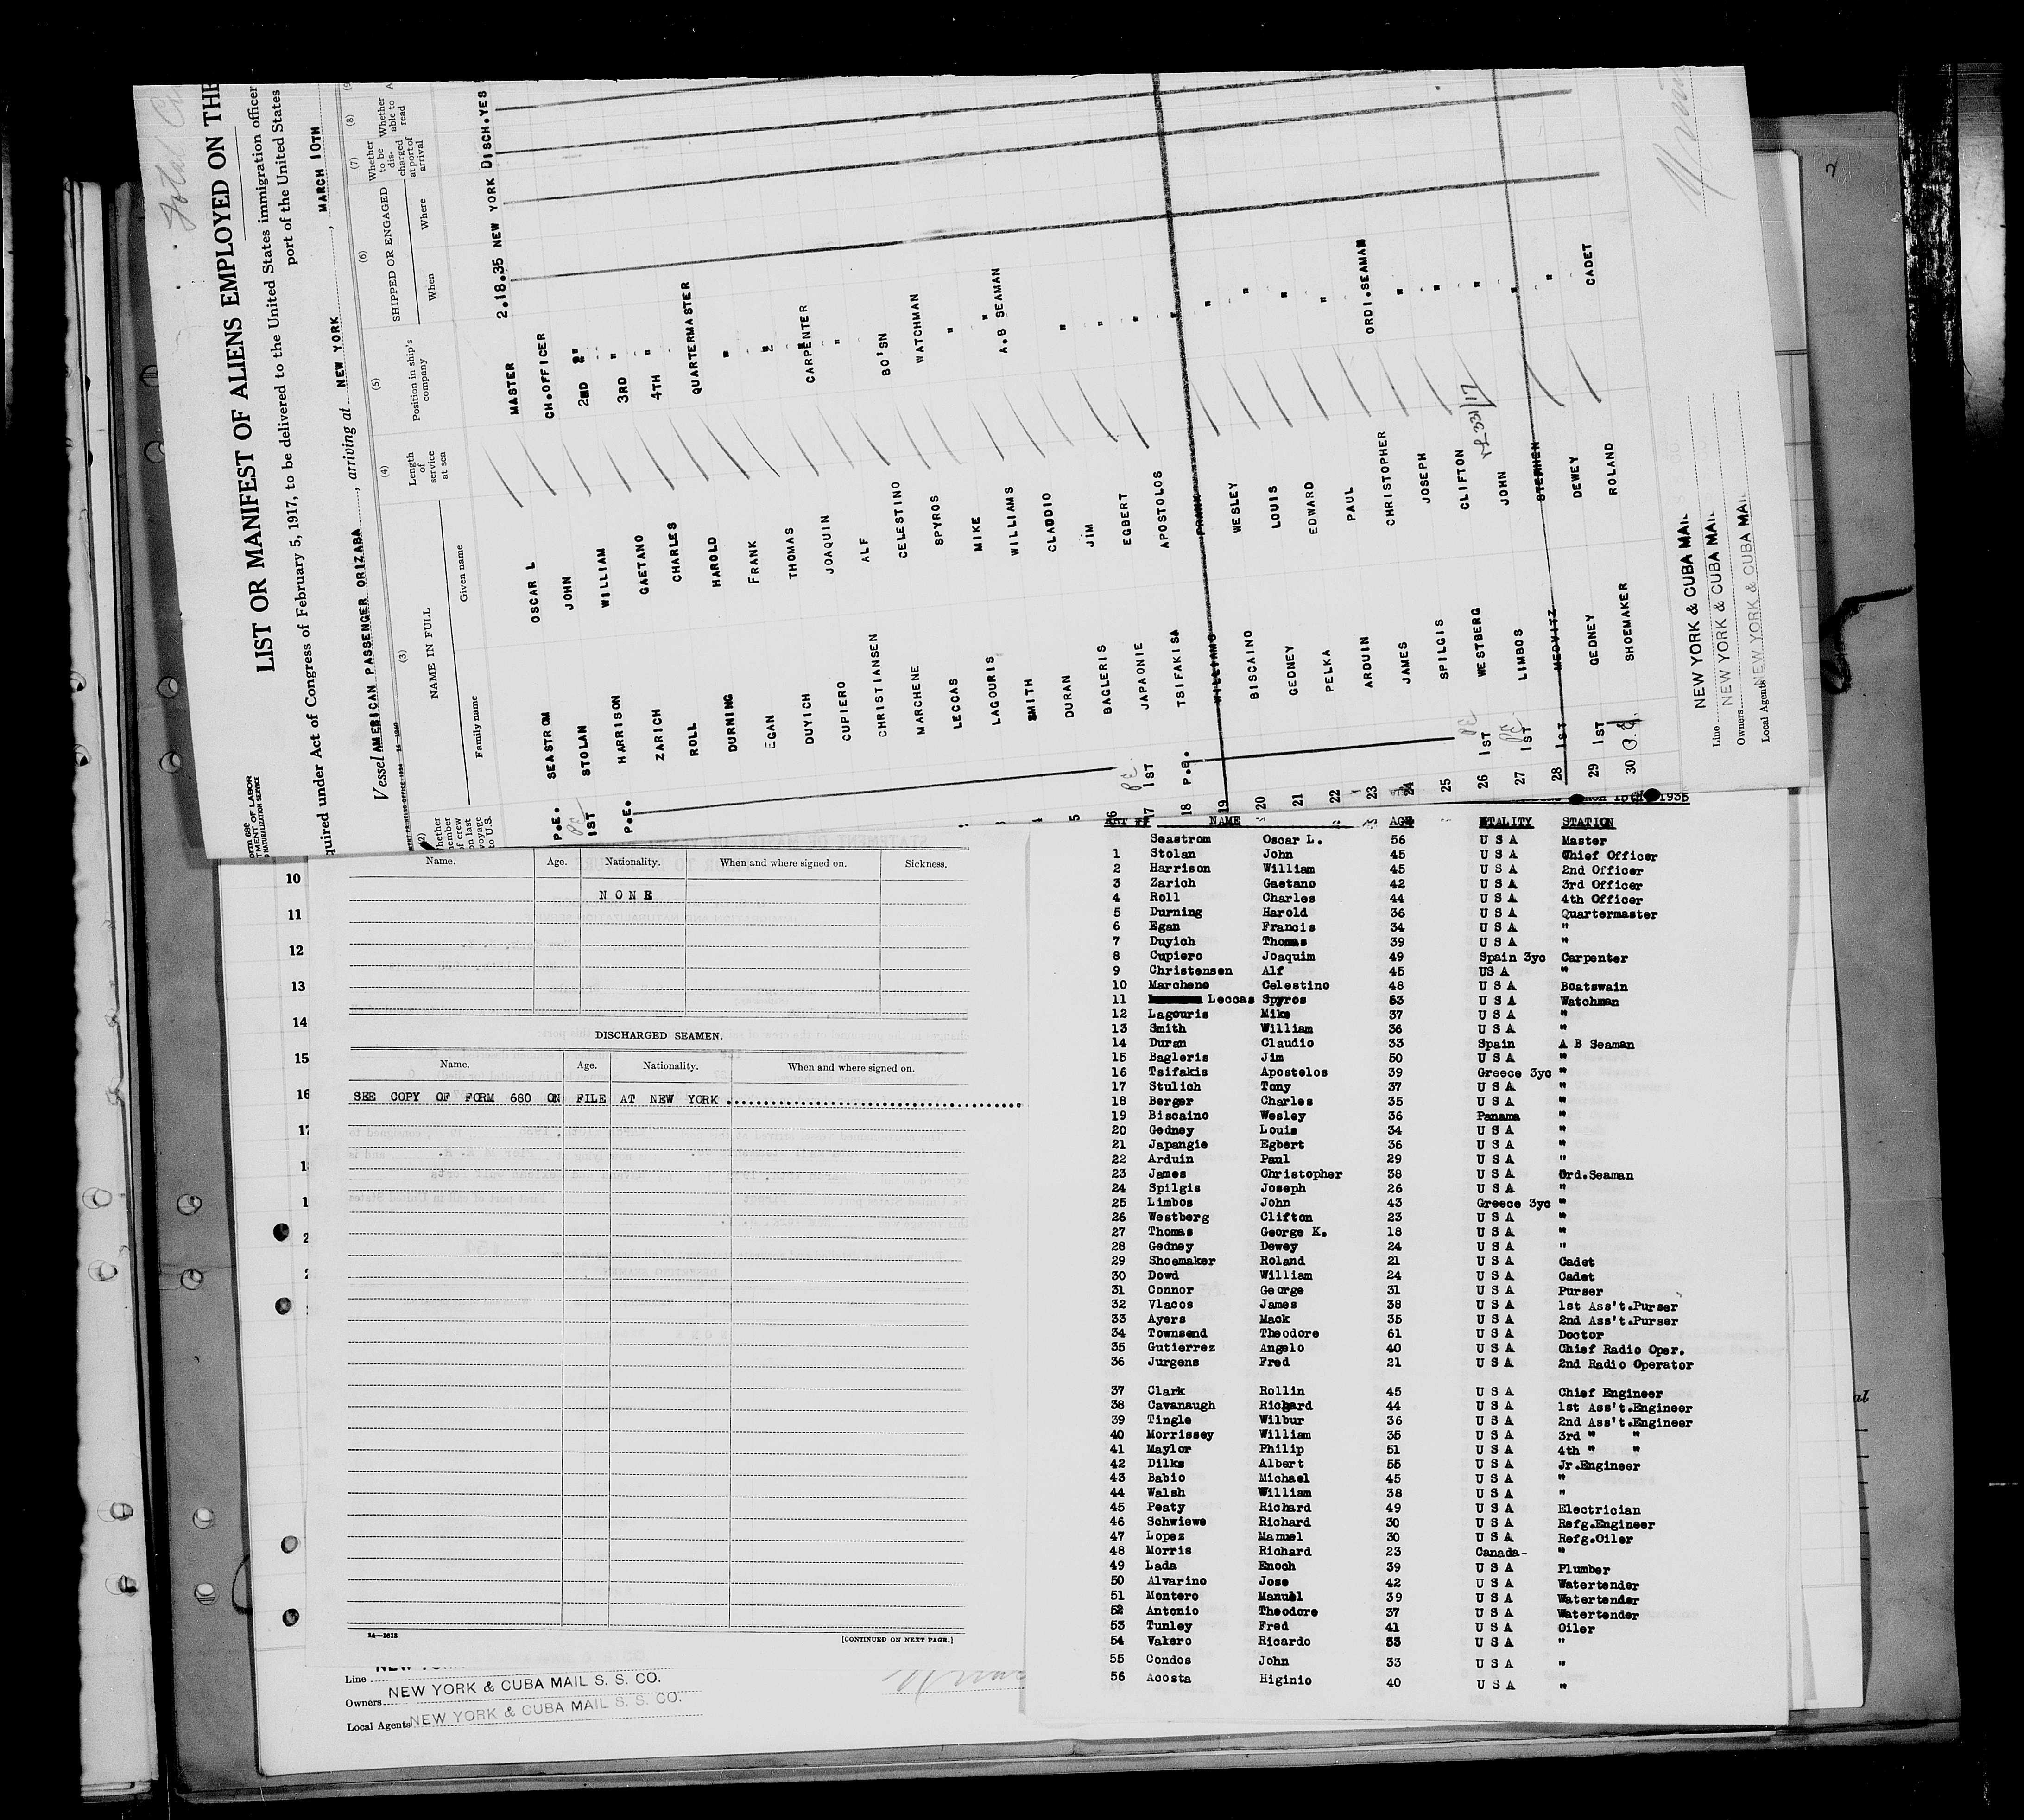 Form 680
LIST OR MANIFEST OF ALIENS EMPLOYED ON THE
quired under Act of Congress of February 5, 1917, to be delivered to the United States immigration officer
port of the United States
Vessel AMERICAN PASSENGER ORIZABA, arriving at NEW YORK, MARCH 10TH
(3) (4) (5) (6) (7) (8)
NAME IN FULL
Family name Given name
Length of service at sea
Position in ship's company
SHIPPED OR ENGAGED
When Where
Whether to be discharged at port of arrival
Whether able to read
P.E. SEASTROM OSCAR L MASTER 2.18.35 NEW YORK DISCH.YES
1ST STOLAN JOHN CH.OFFICER
P.E. HARRISON WILLIAM 2ND "
ZARICH GAETANO 3RD "
ROLL CHARLES 4TH "
DURNING HAROLD QUARTERMASTER
EGAN FRANK "
DUYICH THOMAS "
CUPIERO JOAQUIN CARPENTER
CHRISTIANSEN ALF "
MARCHENE CELESTINO BO'SN
LECCAS SPYROS WATCHMAN
LAGOURIS MIKE "
SMITH WILLIAMS "
DURAN CLAUDIO A.B SEAMAN
BAGLERIS JIM "
1ST JAPAONIE EGBERT "
18 P.E. TSIFAKISA APOSTOLOS "
19 WILLIAMS FRANK "
20 BISCAINO WESLEY "
21 GEDNEY LOUIS "
22 PELKA EDWARD "
23 ARDUIN PAUL "
24 JAMES CHRISTOPHER ORDI.SEAMAN
25 SPILGIS JOSEPH "
26 1ST WESTBERG CLIFTON "
27 1ST LIMBOS JOHN "
28 1ST MEDVITZ STEPHEN "
29 1ST GEDNEY DEWEY "
30 P.E. SHOEMAKER ROLAND CADET
Line NEW YORK & CUBA MAIL
Owners NEW YORK & CUBA MAIL
Local Agents NEW YORK & CUBA MAIL
10
11
12
13
14
15
16
Name. Age. Nationality. When and where signed on. Sickness.
NONE
DISCHARGED SEAMEN.
Name. Age. Nationality. When and where signed on.
SEE COPY OF FORM 680 ON FILE AT NEW YORK
14—1613
[CONTINUED ON NEXT PAGE.]
Line
Owners NEW YORK & CUBA MAIL S. S. CO.
Local Agents NEW YORK & CUBA MAIL S. S. CO.
1935
NAME AGE STATION
Seastrom Oscar L. 56 U S A Master
1 Stolan John 45 U S A Chief Officer
2 Harrison William 45 U S A 2nd Officer
3 Zarich Gaetano 42 U S A 3rd Officer
4 Roll Charles 44 U S A 4th Officer
5 Durning Harold 36 U S A Quartermaster
6 Egan Francis 34 U S A "
7 Duyich Thomas 39 U S A "
8 Cupiero Joaquim 49 Spain 3yc Carpenter
9 Christensen Alf 45 US A "
10 Marchene Celestino 48 U S A Boatswain
11 Leccas Spyros 53 U S A Watchman
12 Lagouris Mike 37 U S A "
13 Smith William 36 U S A "
14 Duran Claudio 33 Spain A B Seaman
15 Bagleris Jim 50 U S A "
16 Tsifakis Apostelos 39 Greece 3yc "
17 Stulich Tony 37 U S A "
18 Berger Charles 35 U S A "
19 Biscaino Wesley 36 Panama "
20 Gedney Louis 34 U S A "
21 Japangie Egbert 36 U S A "
22 Arduin Paul 29 U S A "
23 James Christopher 38 U S A Ord.Seaman
24 Spilgis Joseph 26 U S A "
25 Limbos John 43 Greece 3yc "
26 Westberg Clifton 23 U S A "
27 Thomas George K. 18 U S A "
28 Gedney Dewey 24 U S A "
29 Shoemaker Roland 21 U S A Cadet
30 Dowd William 24 U S A Cadet
31 Connor George 31 U S A Purser
32 Vlacos James 38 U S A 1st Ass't.Purser
33 Ayers Mack 35 U S A 2nd Ass't.Purser
34 Townsend Theodore 61 U S A Doctor
35 Gutierrez Angelo 40 U S A Chief Radio Oper.
36 Jurgens Fred 21 U S A 2nd Radio Operator
37 Clark Rollin 45 U S A Chief Engineer
38 Cavanaugh Richard 44 U S A 1st Ass't.Engineer
39 Tingle Wilbur 36 U S A 2nd Ass't.Engineer
40 Morrissey William 35 U S A 3rd " "
41 Maylor Philip 51 U S A 4th " "
42 Dilks Albert 55 U S A Jr.Engineer
43 Babio Michael 45 U S A "
44 Walsh William 38 U S A "
45 Peaty Richard 49 U S A Electrician
46 Schwiewe Richard 30 U S A Refg.Engineer
47 Lopez Manuel 30 U S A Refg.Oiler
48 Morris Richard 23 Canada- "
49 Lada Enoch 39 U S A Plumber
50 Alvarino Jose 42 U S A Watertender
51 Montero Manuel 39 U S A Watertender
52 Antonio Theodore 37 U S A Watertender
53 Tunley Fred 41 U S A Oiler
54 Valero Ricardo 33 U S A "
55 Condos John 33 U S A "
56 Acosta Higinio 40 U S A "